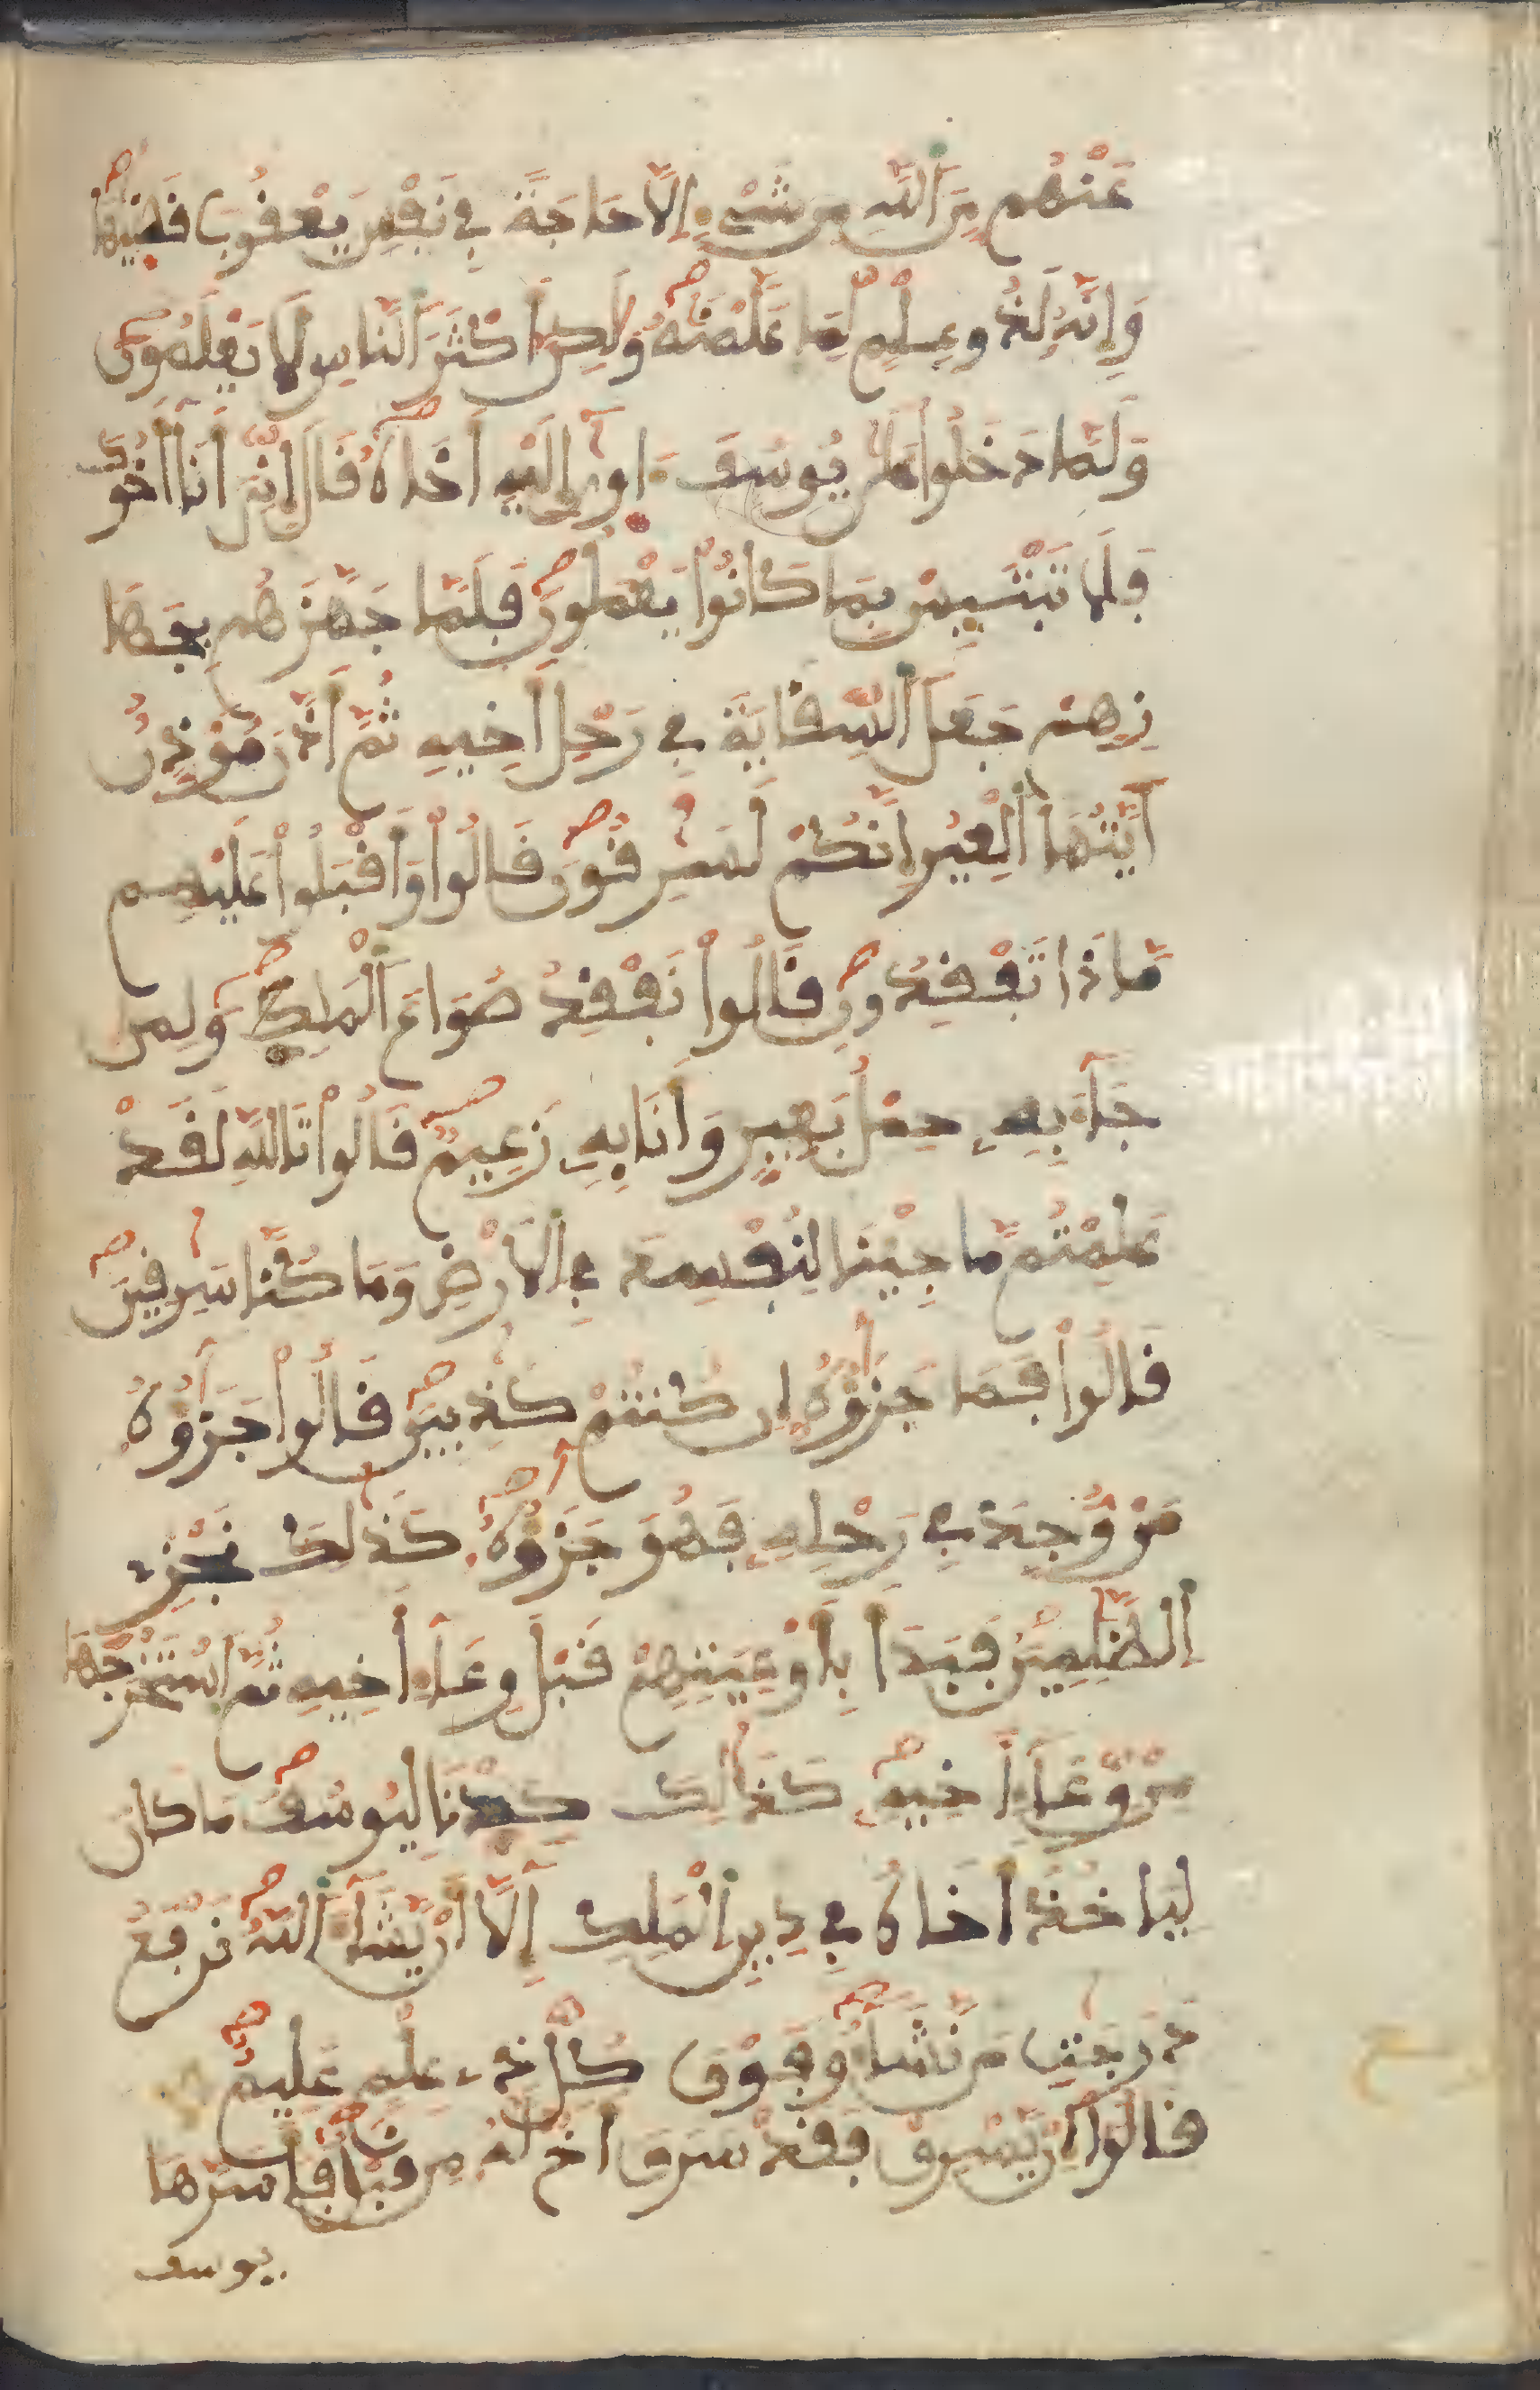 عَنْهُم مِّنَ اَللَّهِ مِن شَےْءٍ اِلَّا حَاجَةٗ فِے نَفْسِ يَعْقُوبَ قَضَيٰهَا
وَإِنَّهُۥ لَذُو عِلْمٖ لِّمَا عَلَّمْنَٰهُ وَلَٰكِنَّ أَكْثَرَ اَلنَّاسِ لَا يَعْلَمُونَ
وَلَمَّا دَخَلُواْ عَلَىٰ يُوسُفَ ءَاوۭىٰٓ إِلَيْهِ أَخَاهُ قَالَ إِنِّيَ أَنَا أَخُوكَ
فَلَا تَبْتَئِسْ بِمَا كَانُواْ يَعْمَلُونَ فَلَمَّا جَهَّزَهُم بِجَهَا
زِهِمْ جَعَلَ اَلسِّقَايَةَ فِے رَحْلِ أَخِيهِ ثُمَّ أَذَّنَ مُؤَذِّنٌ
اَيَّتُهَا اَلْعِيرُ إِنَّكُمْ لَسَٰرِقُونَ قَالُواْ وَأَقْبَلُواْ عَلَيْهِم
مَّاذَا تَفْقِدُونَ قَالُواْ نَفْقِدُ صُوَاعَ اَلْمَلِكِ وَلِمَن
جَآءَ بِهِۦ حِمْلُ بَعِيرٖ وَأَنَا بِهِۦ زَعِيمٞ قَالُواْ تَاللَّهِ لَقَدْ
عَلِمْتُم مَّا جِئْنَا لِنُفْسِدَ فِے اِلَارْضِ وَمَا كُنَّا سَٰرِقِينَ
قَالُواْ فَمَا جَزَٰٓؤُهُۥٓ إِن كُنتُمْ كَٰذِبِينَ قَالُواْ جَزَٰٓؤُهُۥ
مَنْ وُّجِدَ فِے رَحْلِهِۦ فَهُوَ جَزَٰٓؤُهُۥ كَذَٰلِكَ نَجْزِے
اِلظَّٰلِمِينَ فَبَدَأَ بِأَوْعِيَتِهِمْ قَبْلَ وِعَآءِ اَخِيهِ ثُمَّ اَسْتَخْرَجَهَا
مِنْ وِّعَآءِ اَخِيهِ كَذَٰلِكَ كِدْنَا لِيُوسُفَ مَا كَانَ
لِيَاخُذَ أَخَاهُ فِے دِينِ اِلْمَلِكِ إِلَّآ أَنْ يَّشَآءَ اَللَّهُ نَرْفَعُ
دَرَجَٰتِ مَن نَّشَآءُ وَفَوْقَ كُلِّ ذِے عِلْمٍ عَلِيمٞ
قَالُواْ إِنْ يَّسْرِقْ فَقَدْ سَرَقَ أَخٞ لَّهُۥ مِن قَبْلُ فَأَسَرَّهَا
يوسف